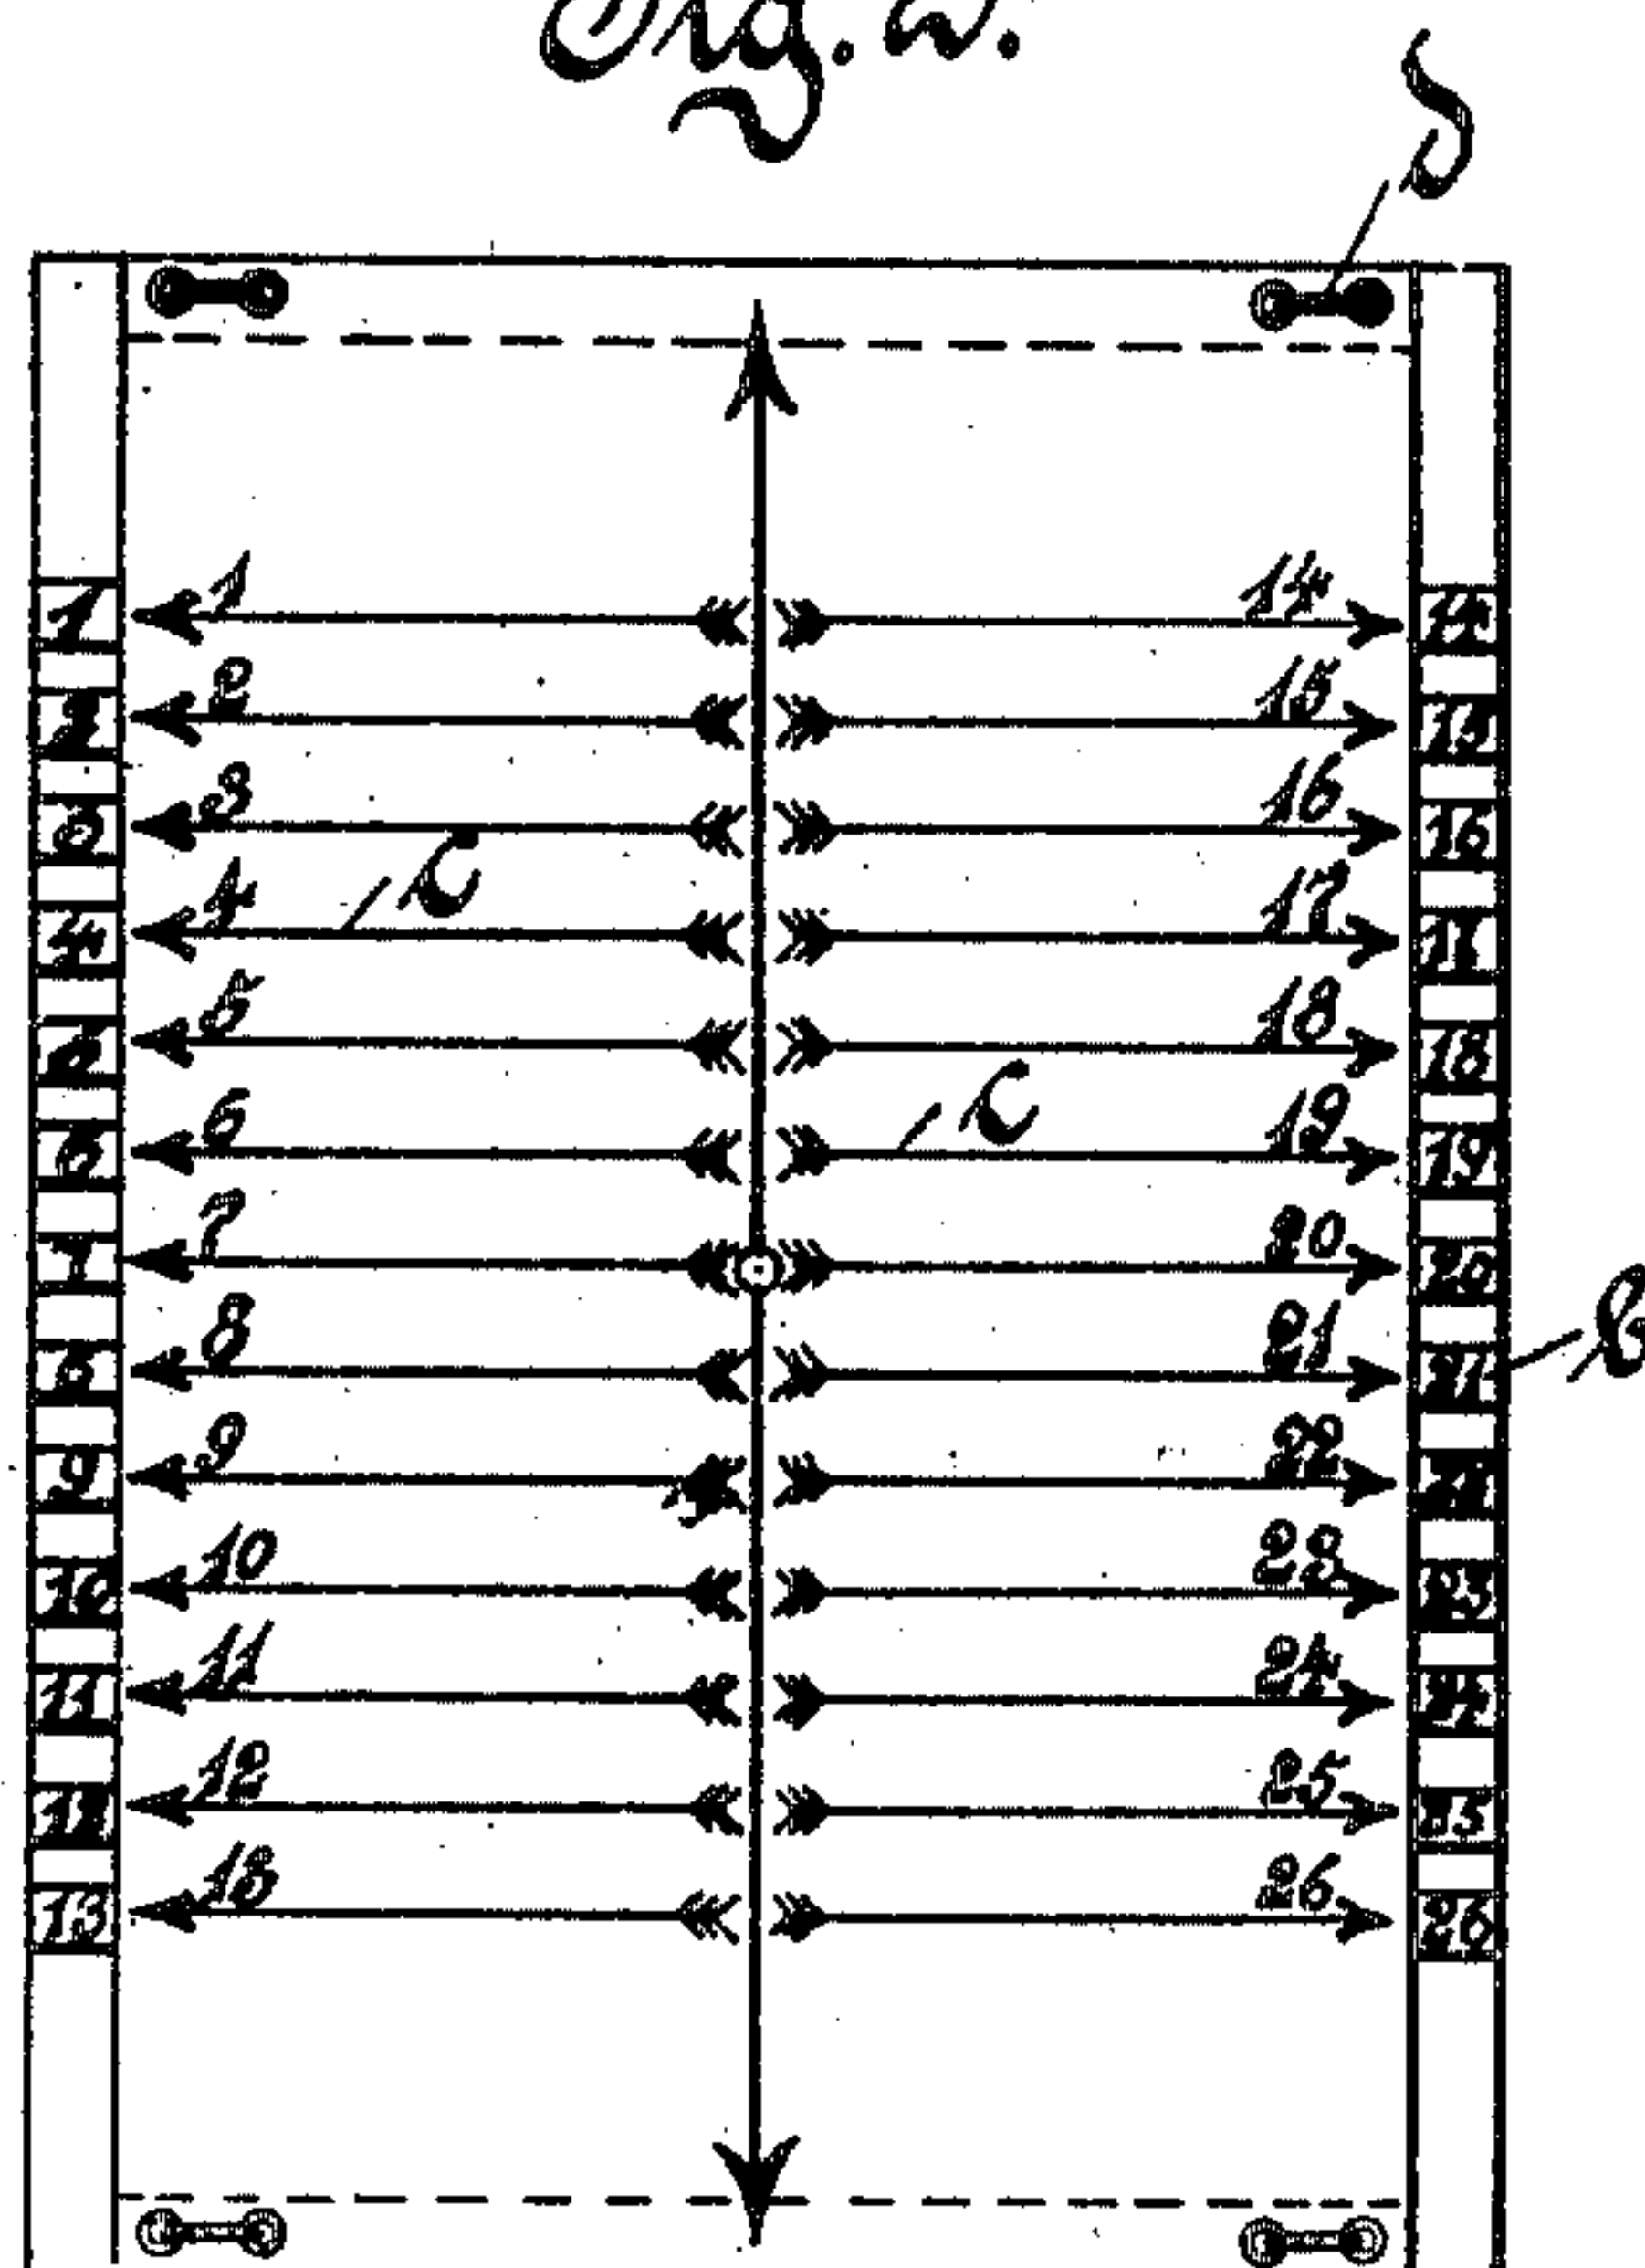 Fig. 2.
1 1 14 14
2 2 15 15
3 3 16 16
C
4 4 17 17
5 5 18 18
C
6 6 19 19
7 7 20 20
8 8 21 21
b
9 9 22 22
10 10 23 23
11 11 24 24
12 12 25 25
13 13 26 26